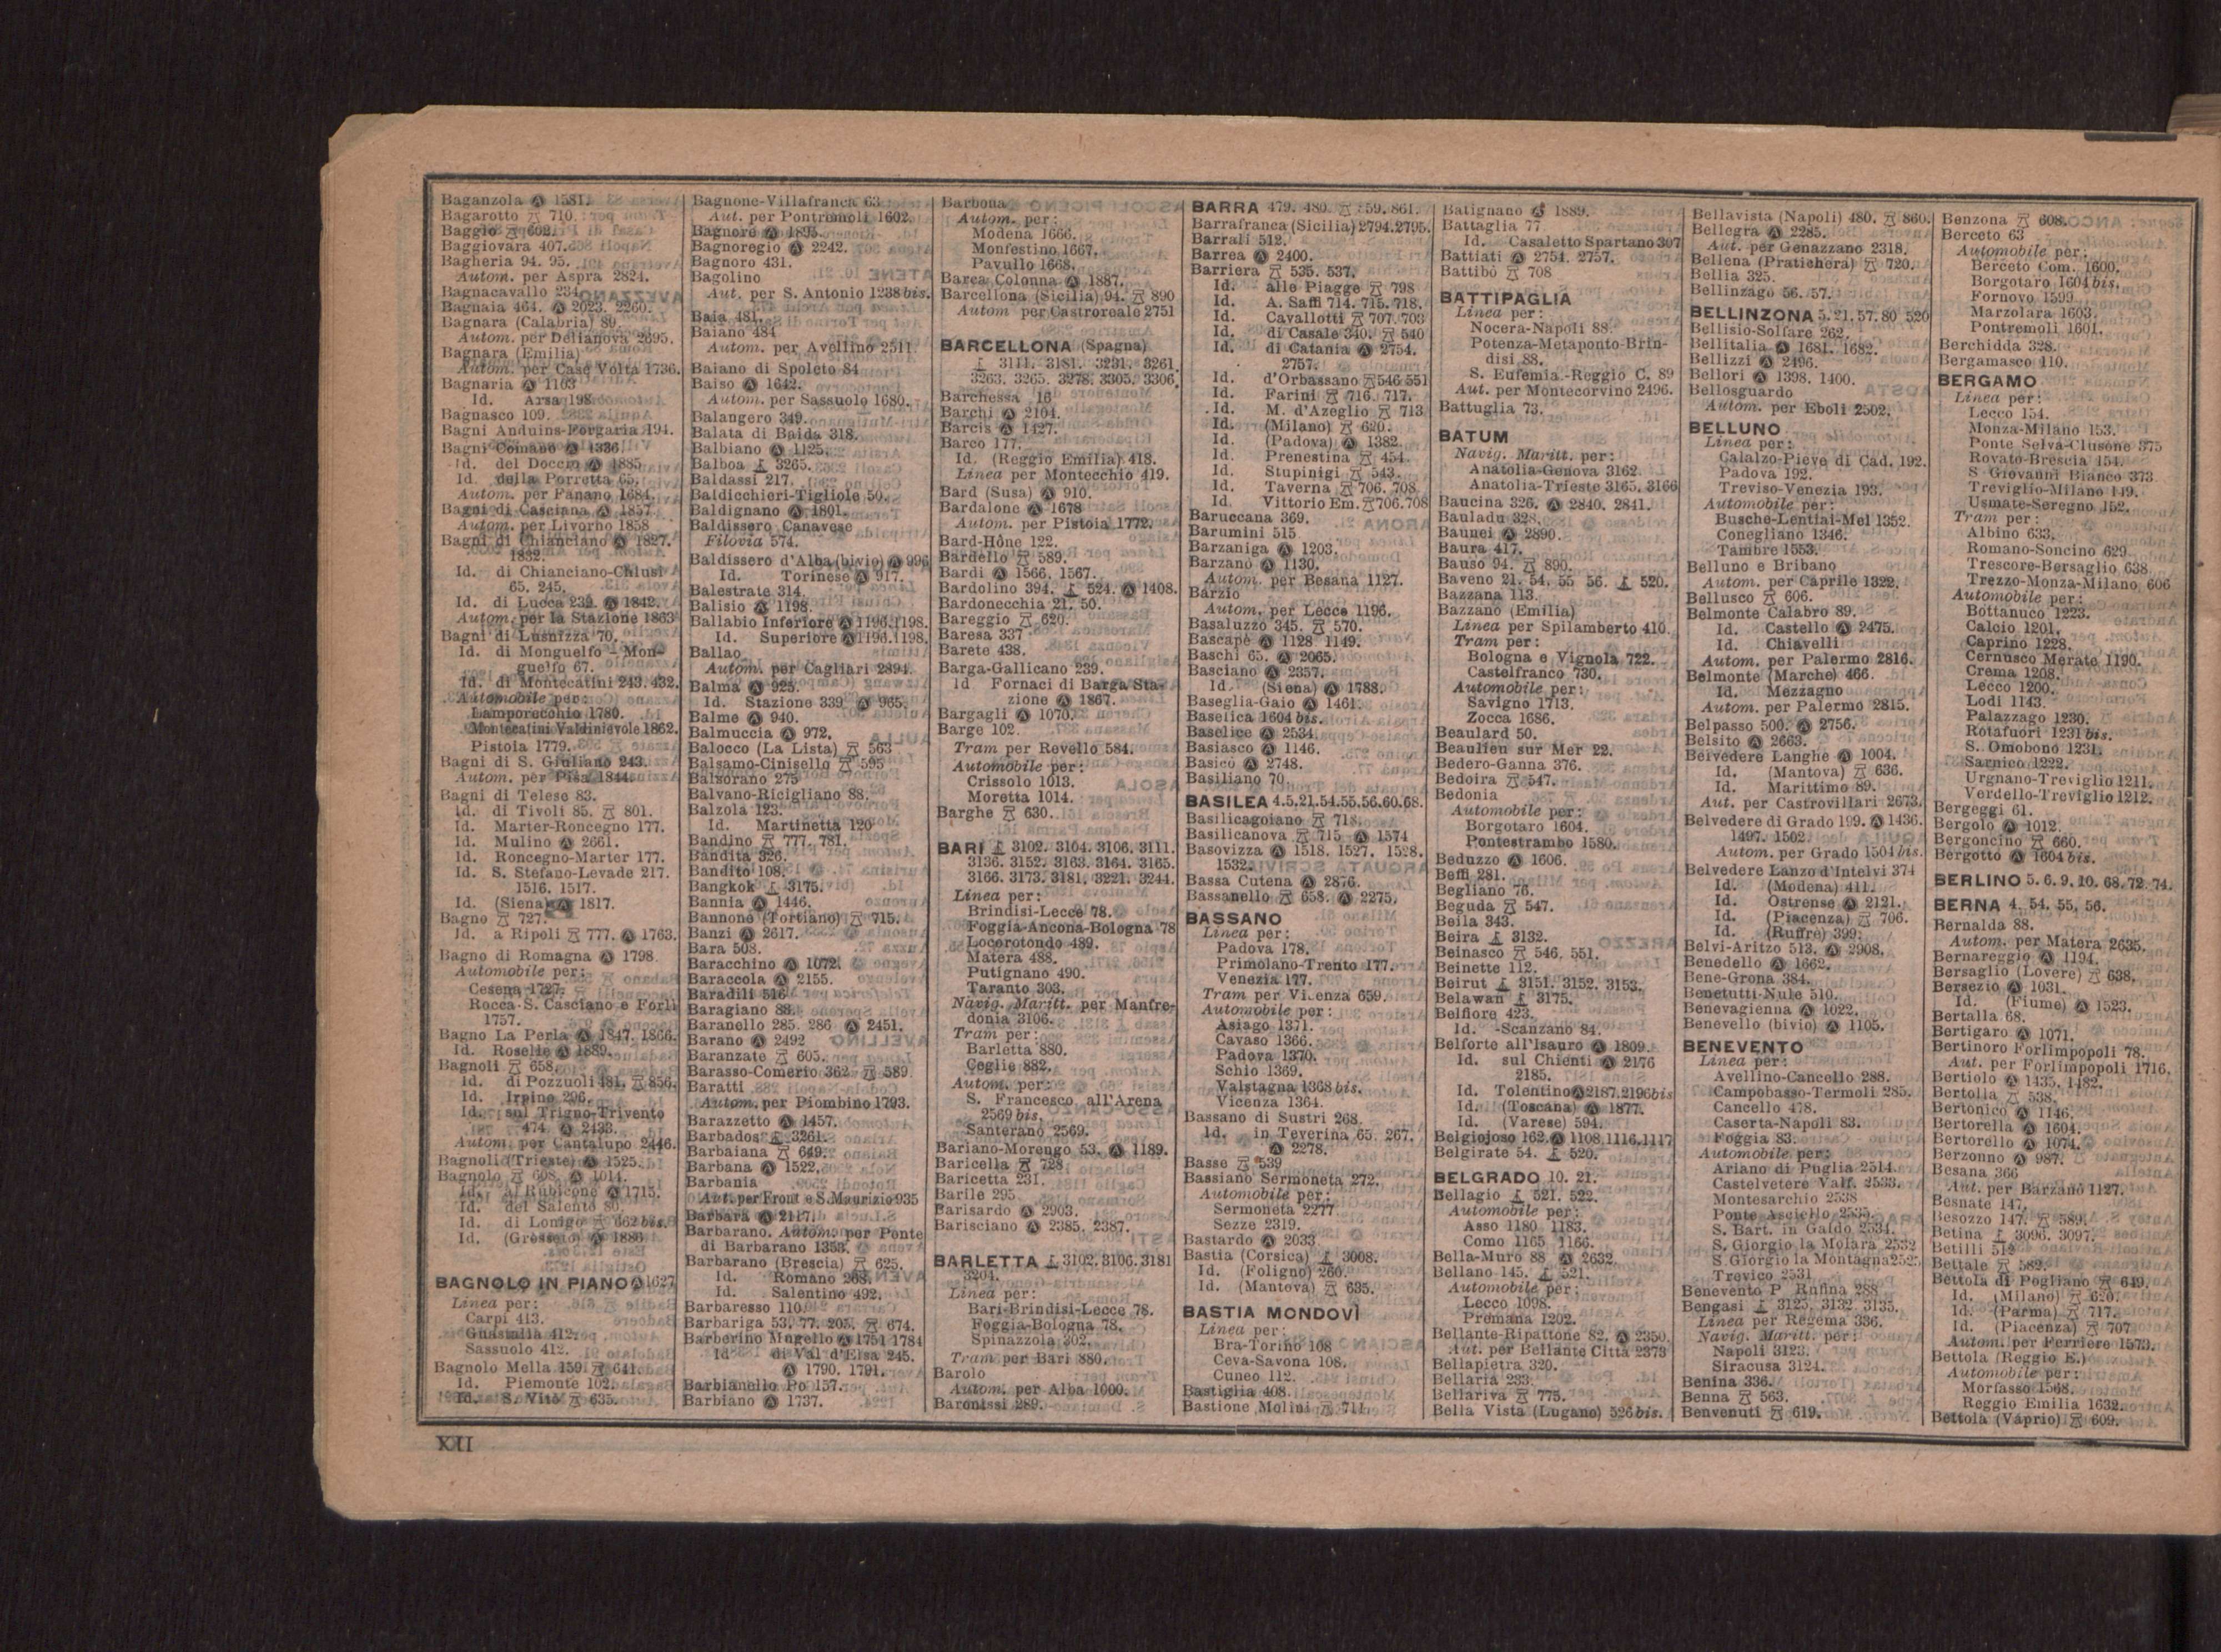 Baganzola Ⓐ 1581.
Bagarotto 710.
Baggio 602.
Baggiovara 407.
Bagheria 94. 95.
Autom. per Aspra 2824.
Bagnacavallo 234.
Bagnaia 464. Ⓐ 2023. 2260.
Bagnara (Calabria) 89.
Autom. per Delianova 2695.
Bagnara (Emilia)
Autom. per Case Volta 1736.
Bagnaria Ⓐ 1163
Id. Arsa 198.
Bagnasco 109.
Bagni Anduins-Forgaria 494.
Bagni Comano Ⓐ 1336.
Id. del Doccio Ⓐ 1885
Id. della Porretta 65.
Autom. per Fanano 1684.
Bagni di Casciana Ⓐ 1857
Autom. per Livorno 1858
Bagni di Chianciano Ⓐ 1827.
1832.
Id. di Chianciano-Chiusi
65. 245.
Id. di Lucca 239. Ⓐ 1842.
Autom. per la Stazione 1863
Bagni di Lusnizza 70.
Id. di Monguelfo - Mon-
guelfo 67.
Id. di Montecatini 243. 432.
Automobile per:
Lamporecchio 1780.
Montecatini Valdinievole 1862.
Pistoia 1779.
Bagni di S. Giuliano 243.
Autom. per Pisa 1844.
Bagni di Telese 83.
Id. di Tivoli 85. 801.
Id. Marter-Roncegno 177.
Id. Mulino Ⓐ 2661.
Id. Roncegno-Marter 177.
Id. S. Stefano-Levade 217.
1516. 1517.
Id. (Siena) Ⓐ 1817.
Bagno 727.
Id. a Ripoli 777. Ⓐ 1763.
Bagno di Romagna Ⓐ 1798.
Automobile per:
Cesena 1727.
Rocca-S. Casciano e Forlì
1757.
Bagno La Perla Ⓐ 1847. 1866.
Id. Roselle Ⓐ 1889.
Bagnoli 658.
Id. di Pozzuoli 481. 856.
Id. Irpino 296.
Id. sul Trigno-Trivento
474. Ⓐ 2433.
Autom. per Cantalupo 2446.
Bagnoli (Trieste) Ⓐ 1525.
Bagnolo 608. Ⓐ 1014.
Id. al Rubicone Ⓐ 1715.
Id. del Salento 80.
Id. di Lonigo 662 bis.
Id. (Grosseto) Ⓐ 1886
BAGNOLO IN PIANO Ⓐ 1627
Linea per:
Carpi 413.
Guastalla 412.
Sassuolo 412.
Bagnolo Mella 159. 641.
Id. Piemonte 102.
Id. S. Vito 635.
Bagnone-Villafranca 63
Aut. per Pontremoli 1602.
Bagnore Ⓐ 1895.
Bagnoregio Ⓐ 2242.
Bagnoro 431.
Bagolino
Aut. per S. Antonio 1238 bis.
Baia 481.
Baiano 484
Autom. per Avellino 2511.
Baiano di Spoleto 84
Baiso Ⓐ 1642.
Autom. per Sassuolo 1680.
Balangero 349.
Balata di Baida 318.
Balbiano Ⓐ 1125.
Balboa 3265.
Baldassi 217.
Baldicchieri-Tigliole 50.
Baldignano Ⓐ 1801.
Baldissero Canavese
Filovia 574.
Baldissero d'Alba (bivio) Ⓐ 996
Id. Torinese Ⓐ 917.
Balestrate 314.
Balisio Ⓐ 1198.
Ballabio Inferiore Ⓐ 1196.1198.
Id. Superiore Ⓐ 1196.1198.
Ballao
Autom. per Cagliari 2894.
Balma Ⓐ 925.
Id. Stazione 339. Ⓐ 965.
Balme Ⓐ 940.
Balmuccia Ⓐ 972.
Balocco (La Lista) 563
Balsamo-Cinisello 595
Balsorano 275
Balvano-Ricigliano 88.
Balzola 123.
Id. Martinetta 120
Bandino 777. 781.
Bandita 326.
Bandito 108.
Bangkok 3175.
Bannia Ⓐ 1446.
Bannone (Tortiano) 715.
Banzi Ⓐ 2617.
Bara 503.
Baracchino Ⓐ 1072.
Baraccola Ⓐ 2155.
Baradili 516
Baragiano 88.
Baranello 285. 286 Ⓐ 2451.
Barano Ⓐ 2492
Baranzate 605.
Barasso-Comerio 362 589
Baratti
Autom. per Piombino 1793.
Barazzetto Ⓐ 1457.
Barbados 3261.
Barbaiana 649.
Barbana Ⓐ 1522.
Barbania
Aut. per Front e S. Maurizio 935
Barbara Ⓐ 2117.
Barbarano. Autom. per Ponte
di Barbarano 1353.
Barbarano (Brescia) 625.
Id. Romano 268.
Id. Salentino 492.
Barbaresso 110.
Barbariga 53. 77. 205. 674.
Barberino Mugello Ⓐ 1751 1784
Id. di Val d'Elsa 245.
Ⓐ 1790. 1791.
Barbianello Po 157.
Barbiano Ⓐ 1737.
Barbona
Autom. per:
Modena 1666.
Monfestino 1667.
Pavullo 1668.
Barca Colonna Ⓐ 1887.
Barcellona (Sicilia) 94. 890
Autom per Castroreale 2751
BARCELLONA (Spagna)
3111. 3181. 3231. 3261.
3263. 3265. 3278. 3305. 3306.
Barchessa 16
Barchi Ⓐ 2104.
Barcis Ⓐ 1427.
Barco 177.
Id. (Reggio Emilia) 418.
Linea per Montecchio 419.
Bard (Susa) Ⓐ 910.
Bardalone Ⓐ 1678
Autom. per Pistoia 1772.
Bard-Hône 122.
Bardello 589.
Bardi Ⓐ 1566. 1567.
Bardolino 394. 524. Ⓐ 1408.
Bardonecchia 21. 50.
Bareggio 620.
Baresa 337
Barete 438.
Barga-Gallicano 239.
Id Fornaci di Barga Sta-
zione Ⓐ 1867.
Bargagli Ⓐ 1070.
Barge 102.
Tram per Revello 584.
Automobile per:
Crissolo 1013.
Moretta 1014.
Barghe 630.
BARI 3102. 3104. 3106. 3111.
3136. 3152. 3163. 3164. 3165.
3166. 3173. 3181. 3221. 3244.
Linea per:
Brindisi-Lecce 78.
Foggia-Ancona-Bologna 78
Locorotondo 489.
Matera 488.
Putignano 490.
Taranto 303.
Navig. Maritt. per Manfre-
donia 3106.
Tram per:
Barletta 880.
Ceglie 882.
Autom. per:
S. Francesco all'Arena
2569 bis.
Santerano 2569.
Bariano-Morengo 53. Ⓐ 1189.
Baricella 728
Baricetta 231.
Barile 295
Barisardo Ⓐ 2903.
Barisciano Ⓐ 2385. 2387.
BARLETTA 3102. 3106. 3181
3204.
Linea per:
Bari-Brindisi-Lecce 78.
Foggia-Bologna 78.
Spinazzola 302.
Tram per Bari 880.
Barolo
Autom. per Alba 1000.
Baronissi 289.
BARRA 479. 480. 859. 861.
Barrafranca (Sicilia) 2794.2795.
Barrali 512.
Barrea Ⓐ 2400.
Barriera 535. 537.
Id. alle Piagge 798
Id. A. Saffi 714. 715. 718.
Id. Cavallotti 707. 703
Id. di Casale 340. 540
Id. di Catania Ⓐ 2754.
2757.
Id. d'Orbassano 546 551
Id. Farini 716. 717.
Id. M. d'Azeglio 713
Id. (Milano) 620.
Id. (Padova) Ⓐ 1382.
Id. Prenestina 454.
Id. Stupinigi 543.
Id. Taverna 706. 708.
Id. Vittorio Em. 706.708
Baruccana 369.
Barumini 515
Barzaniga Ⓐ 1203.
Barzanò Ⓐ 1130.
Autom. per Besana 1127.
Barzio
Autom. per Lecco 1196.
Basaluzzo 345. 570.
Bascapè Ⓐ 1128 1149.
Baschi 65. Ⓐ 2065.
Basciano Ⓐ 2357.
Id. (Siena) Ⓐ 1788.
Baseglia-Gaio Ⓐ 1461.
Baselica 1604 bis.
Baselice Ⓐ 2534.
Basiasco Ⓐ 1146.
Basicò Ⓐ 2748.
Basiliano 70.
BASILEA 4.5.21.54.55.56.60.68.
Basilicagoiano 718.
Basilicanova 715 Ⓐ 1574
Basovizza Ⓐ 1518. 1527. 1528.
1532.
Bassa Cutena Ⓐ 2876.
Bassanello 658. Ⓐ 2275.
BASSANO
Linea per:
Padova 178.
Primolano-Trento 177.
Venezia 177.
Tram per Vicenza 659.
Automobile per:
Asiago 1371.
Cavaso 1366.
Padova 1370.
Schio 1369.
Valstagna 1368 bis.
Vicenza 1364.
Bassano di Sustri 268.
Id. in Teverina 65. 267.
Ⓐ 2278.
Basse 539
Bassiano Sermoneta 272.
Automobile per:
Sermoneta 2277
Sezze 2319.
Bastardo Ⓐ 2033
Bastia (Corsica) 3008.
Id. (Foligno) 260.
Id. (Mantova) 635.
BASTIA MONDOVÌ
Linea per:
Bra-Torino 108
Ceva-Savona 108.
Cuneo 112.
Bastiglia 408.
Bastione Molini 711.
Batignano Ⓐ 1889.
Battaglia 77
Id. Casaletto Spartano 307
Battiati Ⓐ 2754. 2757.
Battibò 708
BATTIPAGLIA
Linea per:
Nocera-Napoli 88.
Potenza-Metaponto-Brin-
disi 88.
S. Eufemia-Reggio C. 89
Aut. per Montecorvino 2496.
Battuglia 73.
BATUM
Navig. Maritt. per:
Anatolia-Genova 3162.
Anatolia-Trieste 3165. 3166
Baucina 326. Ⓐ 2840. 2841.
Bauladu 328.
Baunei Ⓐ 2890.
Baura 417.
Bauso 94. 890.
Baveno 21. 54. 55 56. 520.
Bazzana 113.
Bazzano (Emilia)
Linea per Spilamberto 410.
Tram per:
Bologna e Vignola 722.
Castelfranco 730.
Automobile per:
Savigno 1713.
Zocca 1686.
Beaulard 50.
Beaulieu sur Mer 22.
Bedero-Ganna 376.
Bedoira 547.
Bedonia
Automobile per:
Borgotaro 1604.
Pontestrambo 1580.
Beduzzo Ⓐ 1606.
Beffi 281.
Begliano 76.
Beguda 547.
Beila 343.
Beira 3132.
Beinasco 546. 551.
Beinette 112.
Beirut 3151. 3152. 3153.
Belawan 3175.
Belfiore 423.
Id. -Scanzano 84.
Belforte all'Isauro Ⓐ 1809.
Id. sul Chienti Ⓐ 2176
2185.
Id. Tolentino Ⓐ 2187.2196 bis
Id. (Toscana) Ⓐ 1877.
Id. (Varese) 594.
Belgiojoso 162. Ⓐ 1108.1116.1117
Belgirate 54. 520.
BELGRADO 10. 21.
Bellagio 521. 522.
Automobile per:
Asso 1180. 1183.
Como 1165. 1166.
Bella-Muro 88 Ⓐ 2632.
Bellano 145. 521.
Automobile per:
Lecco 1098.
Premana 1202.
Bellante-Ripattone 82. Ⓐ 2350.
Aut. per Bellante Città 2373
Bellapietra 320.
Bellaria 233.
Bellariva 775.
Bella Vista (Lugano) 526 bis.
Bellavista (Napoli) 480. 860.
Bellegra Ⓐ 2285.
Aut. per Genazzano 2318.
Bellena (Pratichera) 720.
Bellia 325.
Bellinzago 56. 57.
BELLINZONA 5. 21. 57. 80 520
Bellisio-Solfare 262.
Bellitalia Ⓐ 1681. 1682.
Bellizzi Ⓐ 2496.
Bellori Ⓐ 1398. 1400.
Bellosguardo
Autom. per Eboli 2502.
BELLUNO
Linea per:
Calalzo-Pieve di Cad. 192.
Padova 192.
Treviso-Venezia 193.
Automobile per:
Busche-Lentiai-Mel 1352.
Conegliano 1346.
Tambre 1553.
Belluno e Bribano
Autom. per Caprile 1322.
Bellusco 606.
Belmonte Calabro 89.
Id. Castello Ⓐ 2475.
Id. Chiavelli
Autom. per Palermo 2816.
Belmonte (Marche) 466.
Id. Mezzagno
Autom. per Palermo 2815.
Belpasso 500. Ⓐ 2756.
Belsito Ⓐ 2663.
Belvedere Langhe Ⓐ 1004.
Id. (Mantova) 636.
Id. Marittimo 89.
Aut. per Castrovillari 2673.
Belvedere di Grado 199. Ⓐ 1436.
1497. 1502.
Autom. per Grado 1504 bis.
Belvedere Lanzo d'Intelvi 374
Id. (Modena) 411.
Id. Ostrense Ⓐ 2121.
Id. (Piacenza) 706.
Id. (Ruffrè) 399.
Belvi-Aritzo 513. Ⓐ 2908.
Benedello Ⓐ 1662.
Bene-Grona 384.
Benetutti-Nule 510.
Benevagienna Ⓐ 1022.
Benevello (bivio) Ⓐ 1105.
BENEVENTO
Linea per:
Avellino-Cancello 288.
Campobasso-Termoli 285.
Cancello 478.
Caserta-Napoli 83.
Foggia 83.
Automobile per:
Ariano di Puglia 2514.
Castelvetere Valf. 2533.
Montesarchio 2538
Ponte Asciello 2535.
S. Bart. in Galdo 2534.
S. Giorgio la Molara 2532
S. Giorgio la Montagna 2525
Trevico 2531
Benevento P. Rufina 288
Bengasi 3125. 3132 3135.
Linea per Regema 336.
Navig. Maritt. per:
Napoli 3123.
Siracusa 3124.
Benina 336.
Benna 563.
Benvenuti 619.
Benzona 608.
Berceto 63
Automobile per:
Berceto Com. 1600.
Borgotaro 1604 bis.
Fornovo 1599.
Marzolara 1603.
Pontremoli 1601.
Berchidda 328.
Bergamasco 110.
BERGAMO
Linea per:
Lecco 154.
Monza-Milano 153.
Ponte Selva-Clusone 375
Rovato-Brescia 154.
S Giovanni Bianco 373
Treviglio-Milano 149.
Usmate-Seregno 152.
Tram per:
Albino 633.
Romano-Soncino 629
Trescore-Bersaglio 638
Trezzo-Monza-Milano 606
Automobile per:
Bottanuco 1223.
Calcio 1201.
Caprino 1228.
Cernusco Merate 1190.
Crema 1208.
Lecco 1200.
Lodi 1143.
Palazzago 1230.
Rotafuori 1231 bis.
S. Omobono 1231.
Sarnico 1222.
Urgnano-Treviglio 1211.
Verdello-Treviglio 1212.
Bergeggi 61.
Bergolo Ⓐ 1012.
Bergoncino 660.
Bergotto Ⓐ 1604 bis.
BERLINO 5. 6. 9. 10. 68. 72. 74.
BERNA 4. 54. 55. 56.
Bernalda 88.
Autom. per Matera 2635.
Bernareggio Ⓐ 1194.
Bersaglio (Lovere) 638.
Bersezio Ⓐ 1031.
Id. (Fiume) Ⓐ 1523.
Bertalla 68.
Bertigaro Ⓐ 1071.
Bertinoro Forlimpopoli 78.
Aut. per Forlimpopoli 1716.
Bertiolo Ⓐ 1435. 1482.
Bertolla 538.
Bertonico Ⓐ 1146.
Bertorella Ⓐ 1604.
Bertorello Ⓐ 1074.
Berzonno Ⓐ 987.
Besana 366
Aut. per Barzanò 1127.
Besnate 147.
Besozzo 147. 589.
Betina 3096. 3097.
Betilli 512
Bettale 582.
Bettola di Pogliano 649.
Id. (Milano) 620.
Id. (Parma) 717.
Id. (Piacenza) 707
Autom. per Ferriere 1573.
Bettola (Reggio E.)
Automobile per:
Morfasso 1568.
Reggio Emilia 1632.
Bettola (Vaprio) 609.
XII